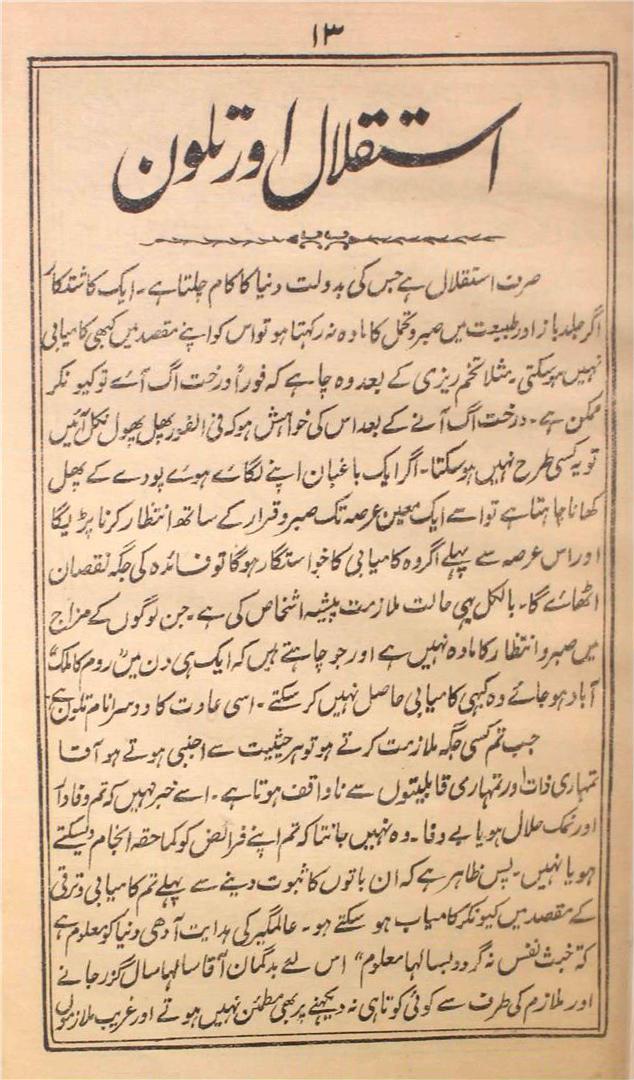 ۱۳
استقلال اور تلون
صرف استقلال ہے جس کی بدولت دنیا کا کام چلتا ہے۔ ایک کاشتکار
اگر جلد باز اور طبیعت میں صبر و تحمل کا مادہ نہ رکہتا ہو تو اس کو اپنے مقصد میں کبھی کامیابی
نہیں ہوسکتی۔ مثلا تخم ریزی کے بعد وہ چاہے کہ فوراً درخت اگ آے تو کیونکر
ممکن ہے۔ درخت اگ آنے کے بعد اس کی خواہش ہو کہ فی الفور پھل پھول نکل آئیں
تو یہ کسی طرح نہیں ہوسکتا۔ اگر ایک باغبان اپنے لگاے ہوے پودے کے پھل
کھانا چاہتا ہے تو اسے ایک معین عرصہ تک صبر و قرار کے ساتھ انتظار کرنا پڑیگا
اور اس عرصہ سے پہلے اگر وہ کامیابی کا خواستگار ہوگا تو فائدہ کی جگہ نقصان
اٹھاے گا۔ بالکل یہی حالت ملازمت پیشہ اشخاص کی ہے۔ جن لوگوں کے مزاج
میں صبر و انتظار کا مادہ نہیں ہے اور جو چاہتے ہیں کہ ایک ہی دن میں روم کا ملک
آباد ہو جائے وہ کبہی کامیابی حاصل نہیں کر سکتے۔ اسی عادت کا دوسرا نام تلون ہے
جب تم کسی جگہ ملازمت کرتے ہو تو ہر حیثیت سے اجنبی ہوتے ہو آقا
تمہاری ذات اور تمہاری قابلیتوں سے ناواقف ہوتا ہے۔ اسے خبر نہیں کہ تم وفادار
اور نمک حلال ہو یا بے وفا۔ وہ نہیں جانتا کہ تم اپنے فرائض کو کما حقہ انجام دیسکتے
ہو یا نہیں۔ پس ظاہر ہے کہ ان باتوں کا ثبوت دینے سے پہلے تم کامیابی و ترقی
کے مقصد میں کیونکر کامیاب ہو سکتے ہو۔ عالمگیر کی ہدایت آدھی دنیا کو معلوم ہے
کہ خبث نفس نہ گردد بسالہا معلوم“ اس لئے بدگمان آقا سالہا سال گزر جانے
اور ملازم کی طرف سے کوئی کوتاہی نہ دیکہنے پر بھی مطمئن نہیں ہوتے اور غریب ملازموں